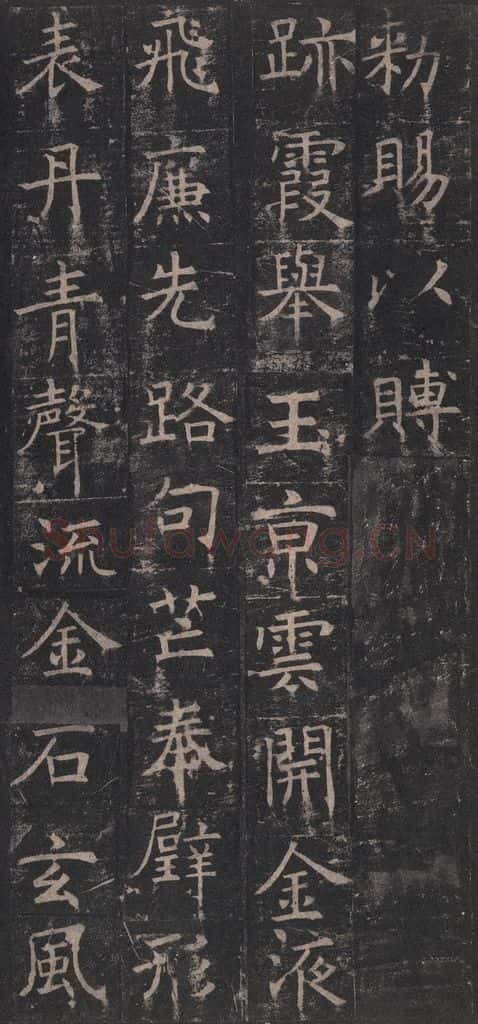 勑賜以賻
跡霞舉玉京雲開金液
飛廉先路句芒奉璧形
表丹青聲流金石玄風
Shufawang.CN